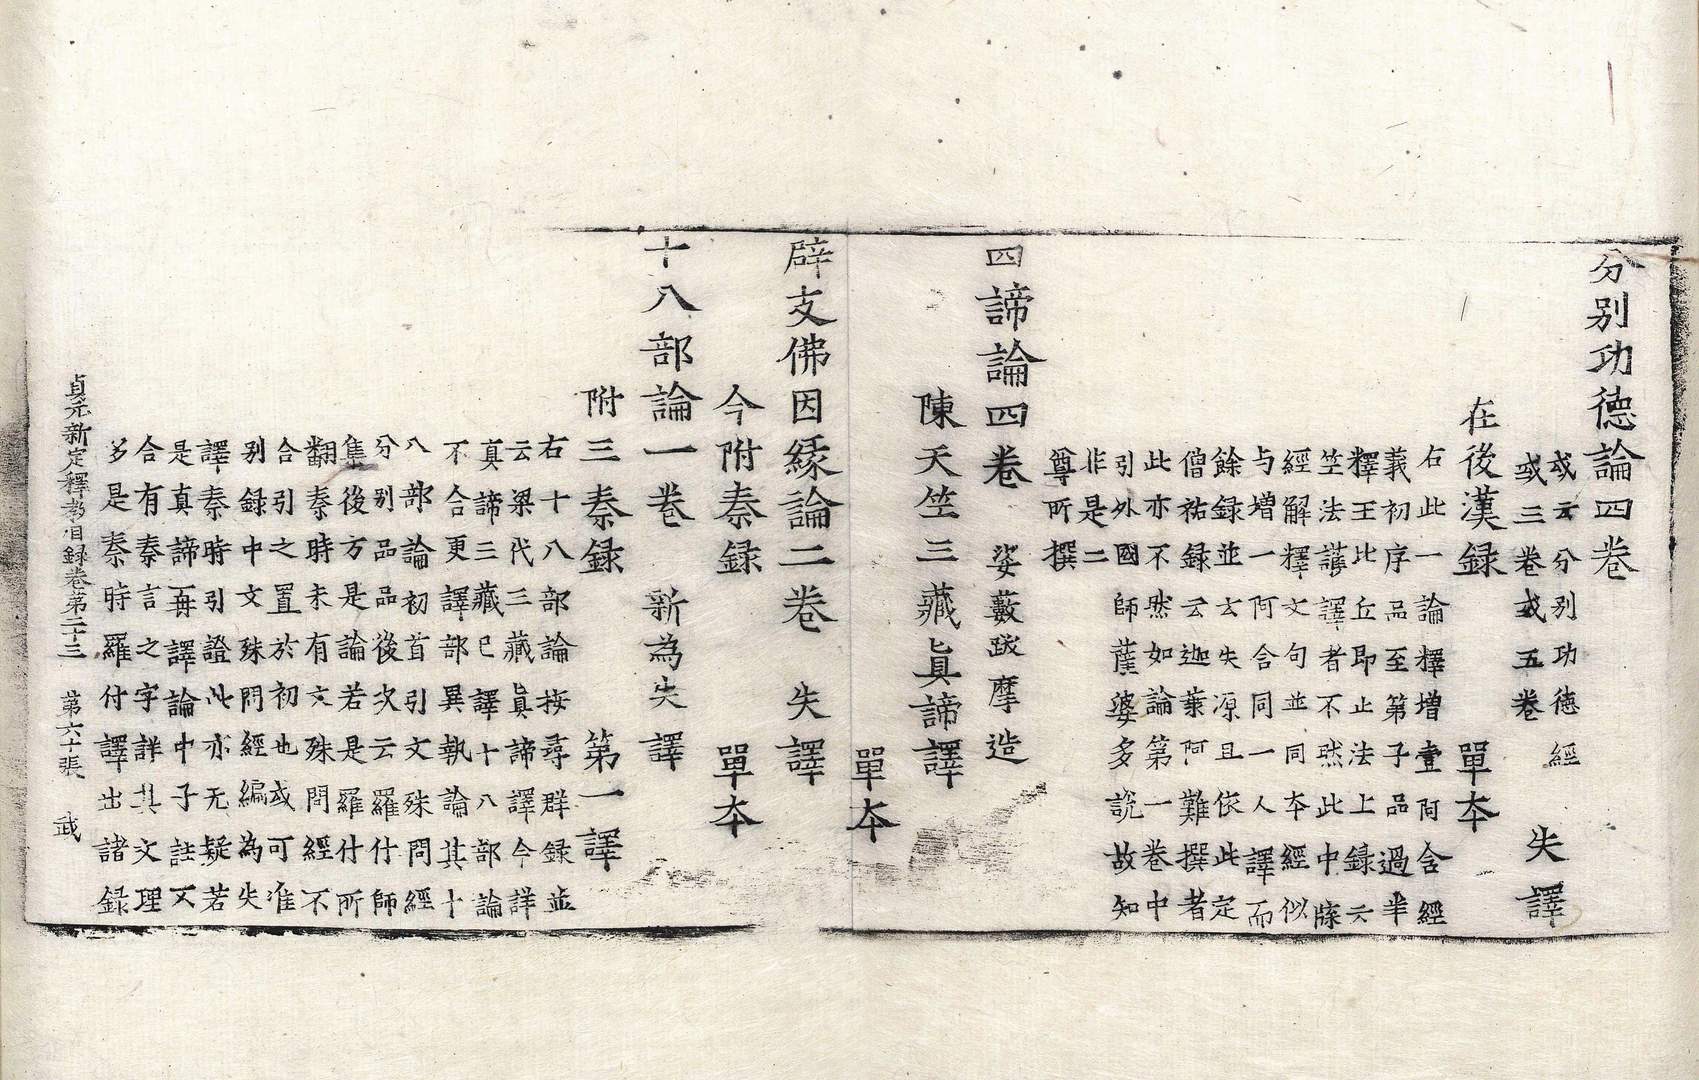 分别功德論四卷
或云分别功德經
或三卷或五卷 失譯
在後漢録 單夲
右此一論釋增壹阿含經
義初序品至第子品過半
釋王比丘即止法上録云
竺法護譯者不然此中牒
經解釋文句並同夲經似
与增一阿含同一人譯而
餘録並云失源且依此定
僧祐録云迦葉阿難撰者
此亦不然如論第一卷中
引外國師薩婆多說故知
非是二
尊所撰
四諦論四卷 婆藪跋摩造
陳天竺三藏眞諦譯
單夲
辟支佛因緣論二卷 失譯
今附秦録 單夲
十八部論一卷 新為失譯
附三秦録 第一譯
右十八部論按尋群録並
云梁代三藏眞諦譯今詳
真諦三藏已譯十八部論
不合更譯部異執論其十
八部論初首引文殊問經
分别品品後次云羅什師
集後方是論若是羅什所
翻秦時未有文殊問經不
合引之置於初也或可准
别録中文殊問經編為失
譯秦時引證此亦无疑若
是真諦再譯論中子註不
合有秦言之字詳其文理
多是秦時羅什譯出諸録
貞元新定釋教目録卷第二十三 第六十張 武